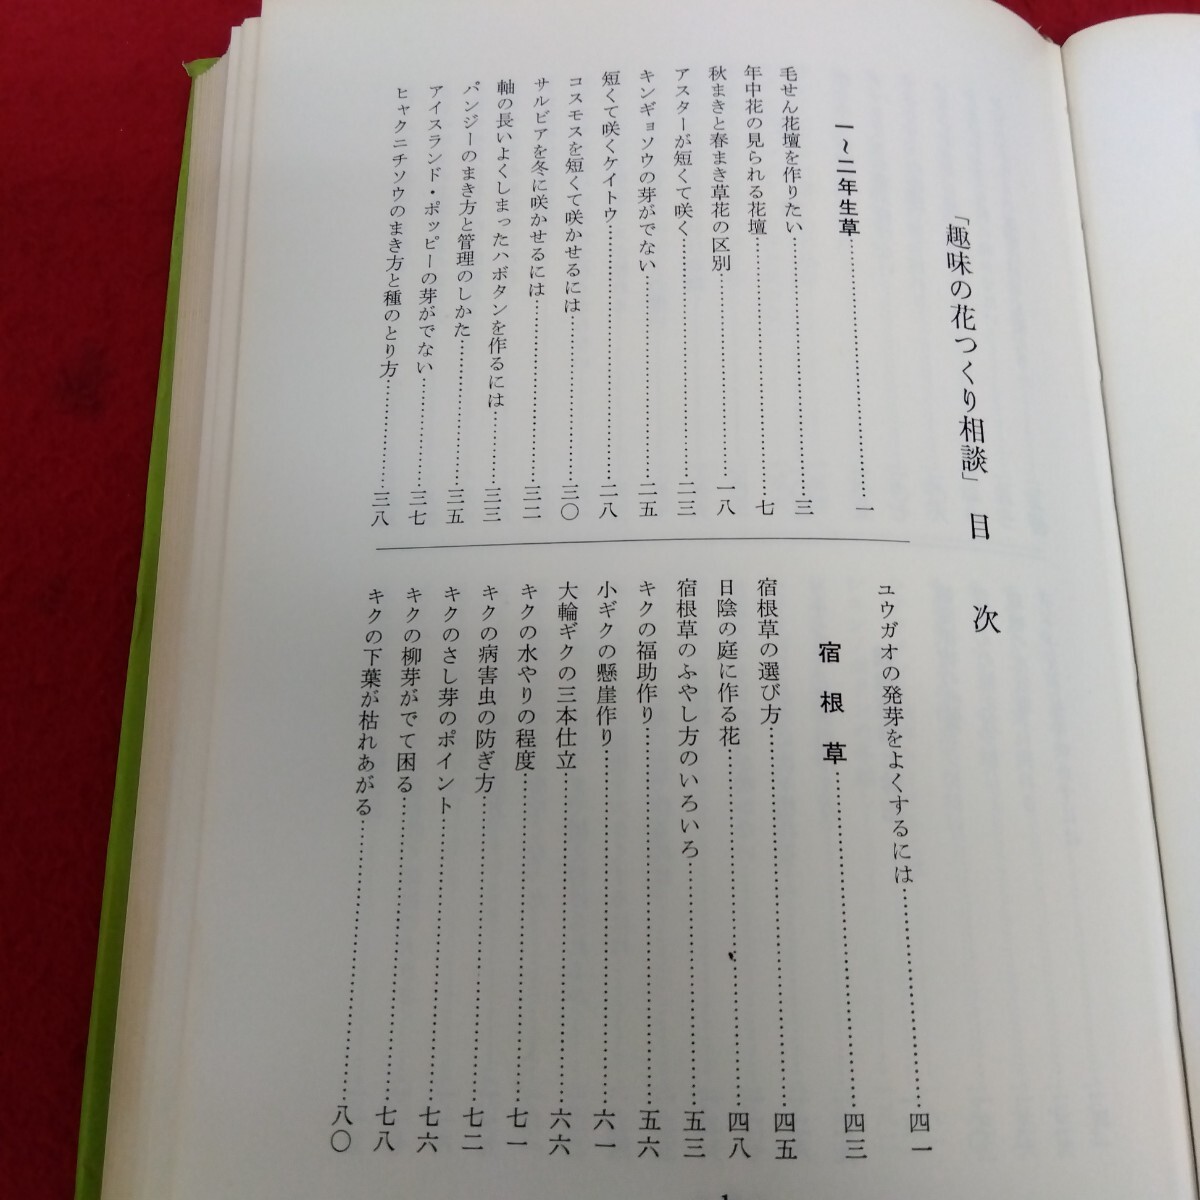 「趣味の花つくり相談」 目 次
一〜二年生草……一
毛せん花壇を作りたい……三
年中花の見られる花壇……七
秋まきと春まき草花の区別……一八
アスターが短くて咲く……二三
キンギョソウの芽がでない……二五
短くて咲くケイトウ……二八
コスモスを短くて咲かせるには……三〇
サルビアを冬に咲かせるには……三二
軸の長いよくしまったハボタンを作るには……三三
パンジーのまき方と管理のしかた……三五
アイスランド・ポッピーの芽がでない……三七
ヒャクニチソウのまき方と種のとり方……三八
ユウガオの発芽をよくするには……四一
宿根草……四三
宿根草の選び方……四五
日陰の庭に作る花……四八
宿根草のふやし方のいろいろ……五三
キクの福助作り……五六
小ギクの懸崖作り……六一
大輪ギクの三本仕立……六六
キクの水やりの程度……七一
キクの病害虫の防ぎ方……七二
キクのさし芽のポイント……七六
キクの柳芽がでて困る……七八
キクの下葉が枯れあがる……八〇